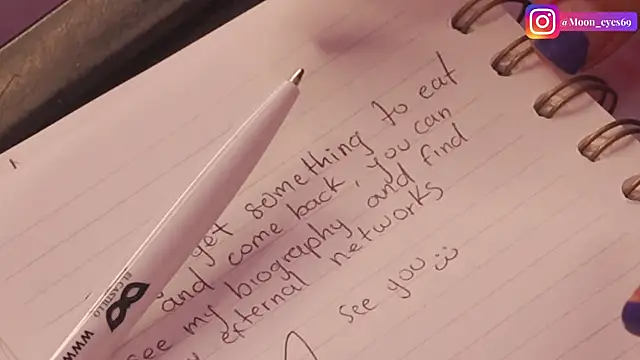 @Moon_eyes69
get something to eat
and come back, you can
see my biography and find
external networks
see you
EL CASTILLO
WWW